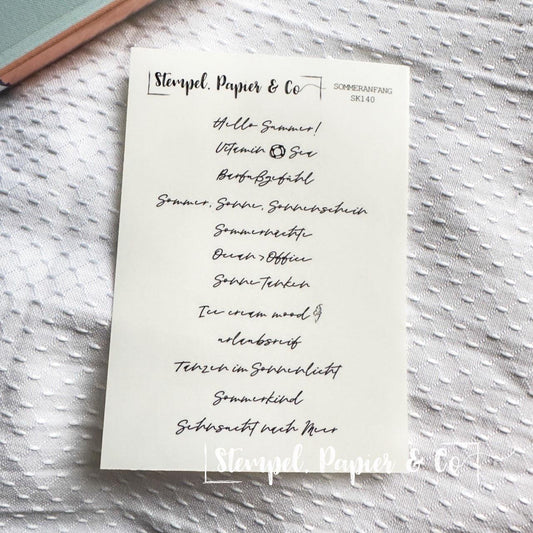 Stempel, Papier & Co
SOMMERANFANG
SK140
Hello Summer!
Vitamin Sea
Barfußgefühl
Sommer, Sonne, Sonnenschein
Sommernächte
Ocean > Office
Sonne Tanken
Ice cream mood
urlaubsreif
Tanzen im Sonnenlicht
Sommerkind
Sehnsucht nach Meer
Stempel, Papier & Co